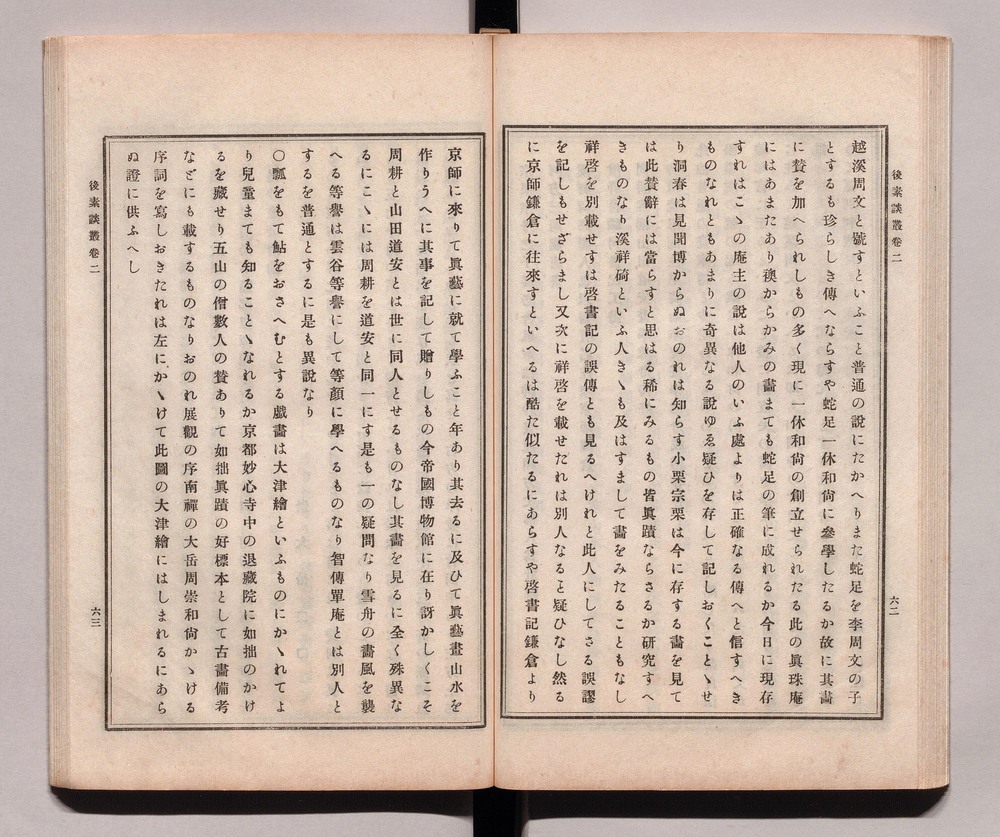 後素談叢卷二
六二
越溪周文と號すといふこと普通の說にたかへりまた蛇足を李周文の子
とするも珍らしき傳へならすや蛇足一休和尙に參學したるか故に其畵
に賛を加へられしもの多く現に一休和尙の創立せられたる此の眞珠庵
にはあまたあり襖からかみの畵まても蛇足の筆に成れるか今日に現存
すれはこゝの庵主の說は他人のいふ處よりは正確なる傳へと信すへき
ものなれともあまりに奇異なる說ゆゑ疑ひを存して記しおくことゝせ
り洞春は見聞博からぬおのれは知らす小栗宗栗は今に存する畵を見て
は此賛辭には當らすと思はる稀にみるもの皆眞蹟ならさるか硏究すへ
きものなり溪祥碕といふ人きゝも及はすまして畵をみたることもなし
祥啓を別載せすは啓書記の誤傳とも見るへけれと此人にしてさる誤謬
を記しもせざらまし又次に祥啓を載せたれは別人なると疑ひなし然る
に京師鎌倉に往來すといへるは酷た似たるにあらすや啓書記鎌倉より
京師に來りて眞藝に就て學ふこと年あり其去るに及ひて眞藝畫山水を
作りうへに其事を記して贈りしもの今帝國博物館に在り訝かしくこそ
周耕と山田道安とは世に同人とせるものなし其畵を見るに全く殊異な
るにこゝには周耕を道安と同一にす是も一の疑問なり雪舟の畵風を襲
へる等譽は雲谷等譽にして等顏に學へるものなり智傳單庵とは別人と
するを普通とするに是も異說なり
〇瓢をもて鮎をおさへむとする戲畵は大津繪といふものにかゝれてよ
り兒童まても知ることゝなれるか京都妙心寺中の退藏院に如拙のかけ
るを藏せり五山の僧數人の賛ありて如拙眞蹟の好標本として古畵備考
などにも載するものなりおのれ展觀の序南禪の大岳周崇和尙かゝける
序詞を寫しおきたれは左にかゝけて此圖の大津繪にはしまれるにあら
ぬ證に供ふへし
後素談叢卷二
六三